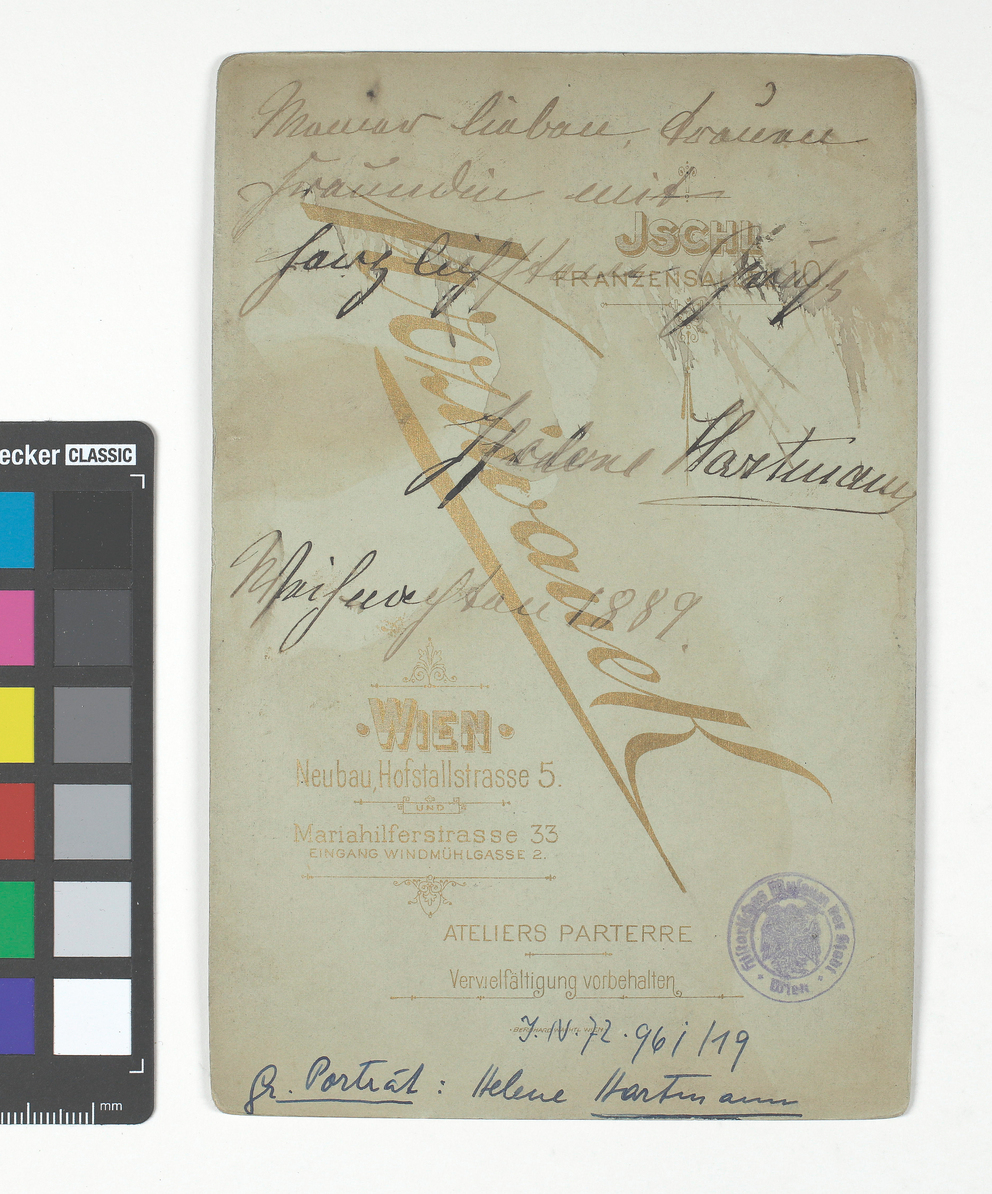 Meiner lieben, treuen
Freundin mit
herzlichstem Gruß
Helene Hartmann
Weihnachten 1889.
JSCHL
FRANZENSALLEE 10
Wien
Neubau, Hofstallstrasse 5.
UND
Mariahilferstrasse 33
EINGANG WINDMÜHLGASSE 2.
ATELIERS PARTERRE
Vervielfältigung vorbehalten
BERNHARD WACHTL WIEN
Historisches Museum der Stadt Wien
J.N. 72.961/19
gr. Porträt: Helene Hartmann
ecker CLASSIC
mm